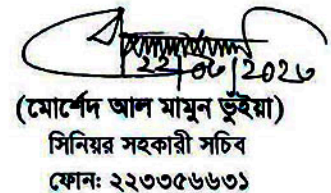 (মোর্শেদ আল মামুন ভুঁইয়া)
সিনিয়র সহকারী সচিব
ফোন: ২২৩৩৫৬৬৩১